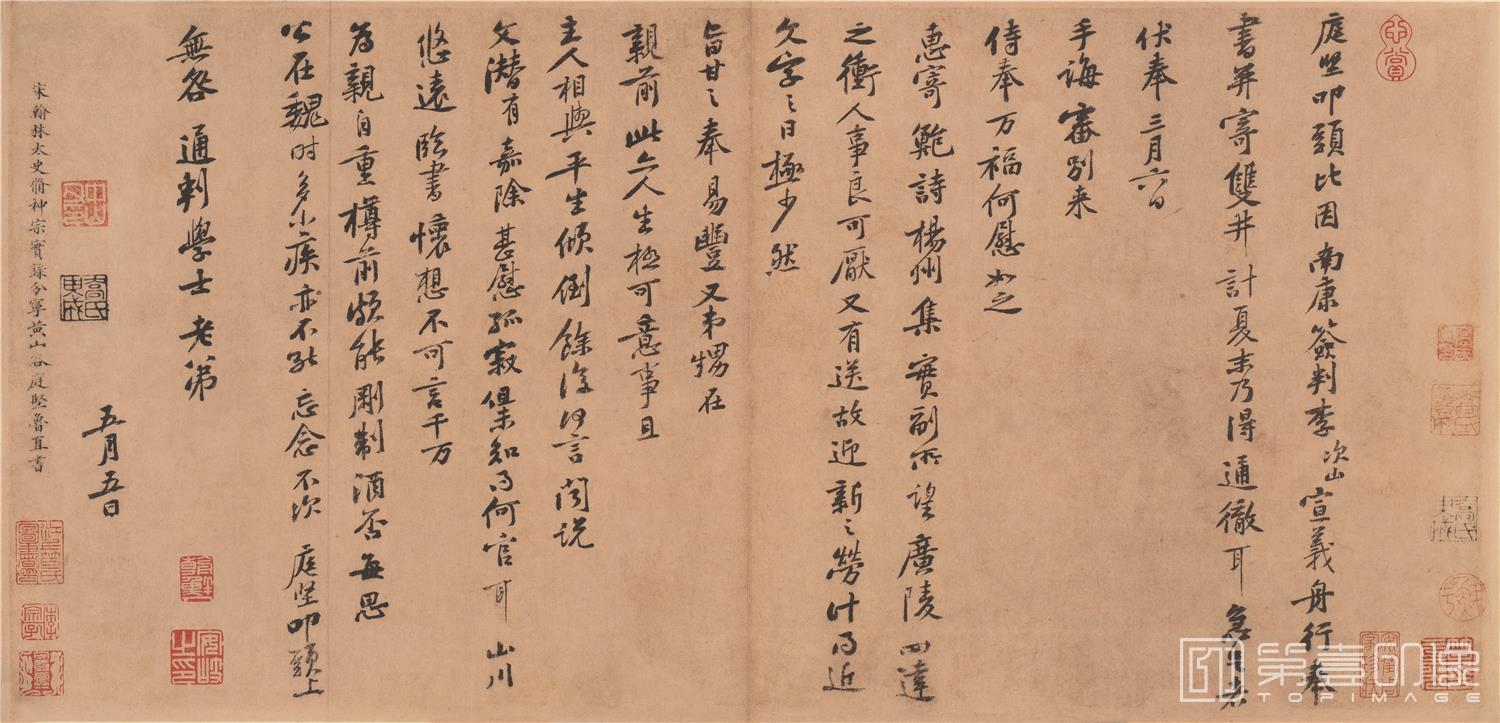 庭堅叩頭比因南康簽判李次山宣義舟行奉
書并寄雙井計夏末乃得通徹耳急足者
伏奉三月六日
手誨審別来
侍奉万福何慰如之
惠寄鮑詩楊州集實副所望廣陵四達
之衝人事良可厭又有送故迎新之勞計今近
文字之日極少然
旨甘之奉易豐又弟甥在
親前此亦人生極可意事且
主人相與平生傾倒餘復何言聞説
文潛有嘉除甚慰孤寂但未知得何官耳山川
悠遠臨書懷想不可言千万
為親自重樽前頗能剛制酒否每思
公在魏時多小疾亦不能忘念不次 庭堅叩頭上
無咎通判學士老弟
五月五日
宋翰林太史脩神宗實録分寧黄山谷庭堅魯直書
第壹印像
TOPIMAGE